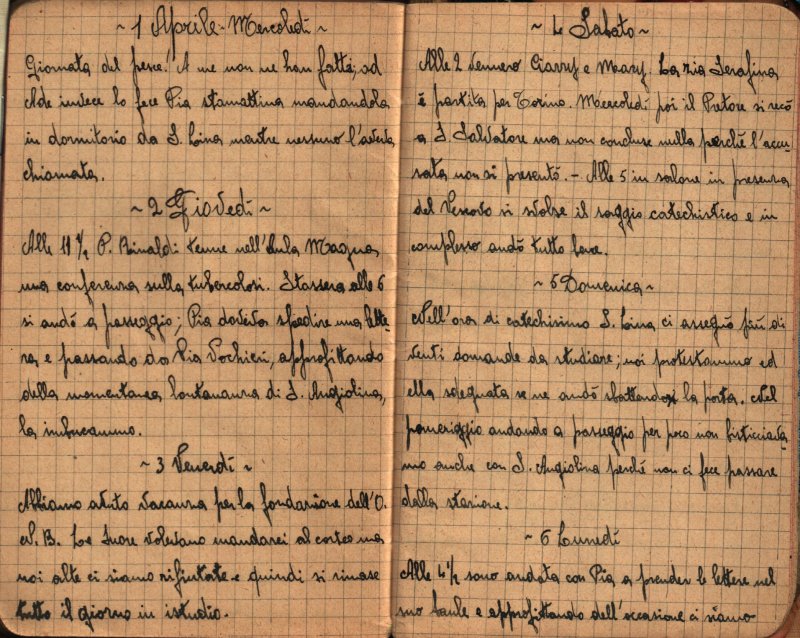 ~ 1 Aprile - Mercoledì ~
Giornata del pesce. A me non ne han fatti, ad
Ade invece lo fece Pia stamattina mandandola
in dormitorio da S. Lina mentre nessuno l'aveva
chiamata.
~ 2 Giovedì ~
Alle 11 1/2 P. Rinaldi tenne nell'Aula Magna
una conferenza sulla tubercolosi. Stassera alle 6
si andò a passeggio; Pia doveva spedire una lette-
ra e passando da Via Pochieri, approfittando
della momentanea lontananza di S. Angiolina,
la imbucammo.
~ 3 Venerdì ~
Abbiamo avuto vacanza per la fondazione dell'O.
N. B. Le Suore volevano mandarci al corteo ma
noi alte ci siamo rifiutate e quindi si rimase
tutto il giorno in istudio.
~ 4 Sabato ~
Alle 2 vennero Ciassy e Meary. La zia Serafina
è partita per Torino. Mercoledì poi il Pretore si recò
a S. Salvatore ma non concluse nulla perché l'accu-
sata non si presentò. - Alle 5 in salone in presenza
del Vescovo si svolse il saggio catechistico e in
complesso andò tutto bene.
~ 5 Domenica ~
Nell'ora di catechismo S. Lina ci assegnò più di
venti domande da studiare; noi protestammo ed
ella sdegnata se ne andò sbattendo la porta. Nel
pomeriggio andando a passeggio per poco non bisticciava
mo anche con S. Angiolina perché non ci fece passare
dalla stazione.
~ 6 Lunedì
Alle 4 1/2 sono andata con Pia a prender le lettere nel
suo baule e approfittando dell'occasione ci siamo